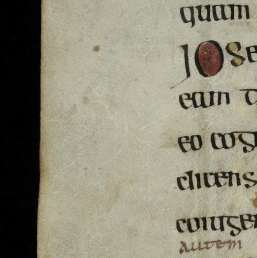 quam
Jose
eam
eo cog
dicens
coniuge
autem